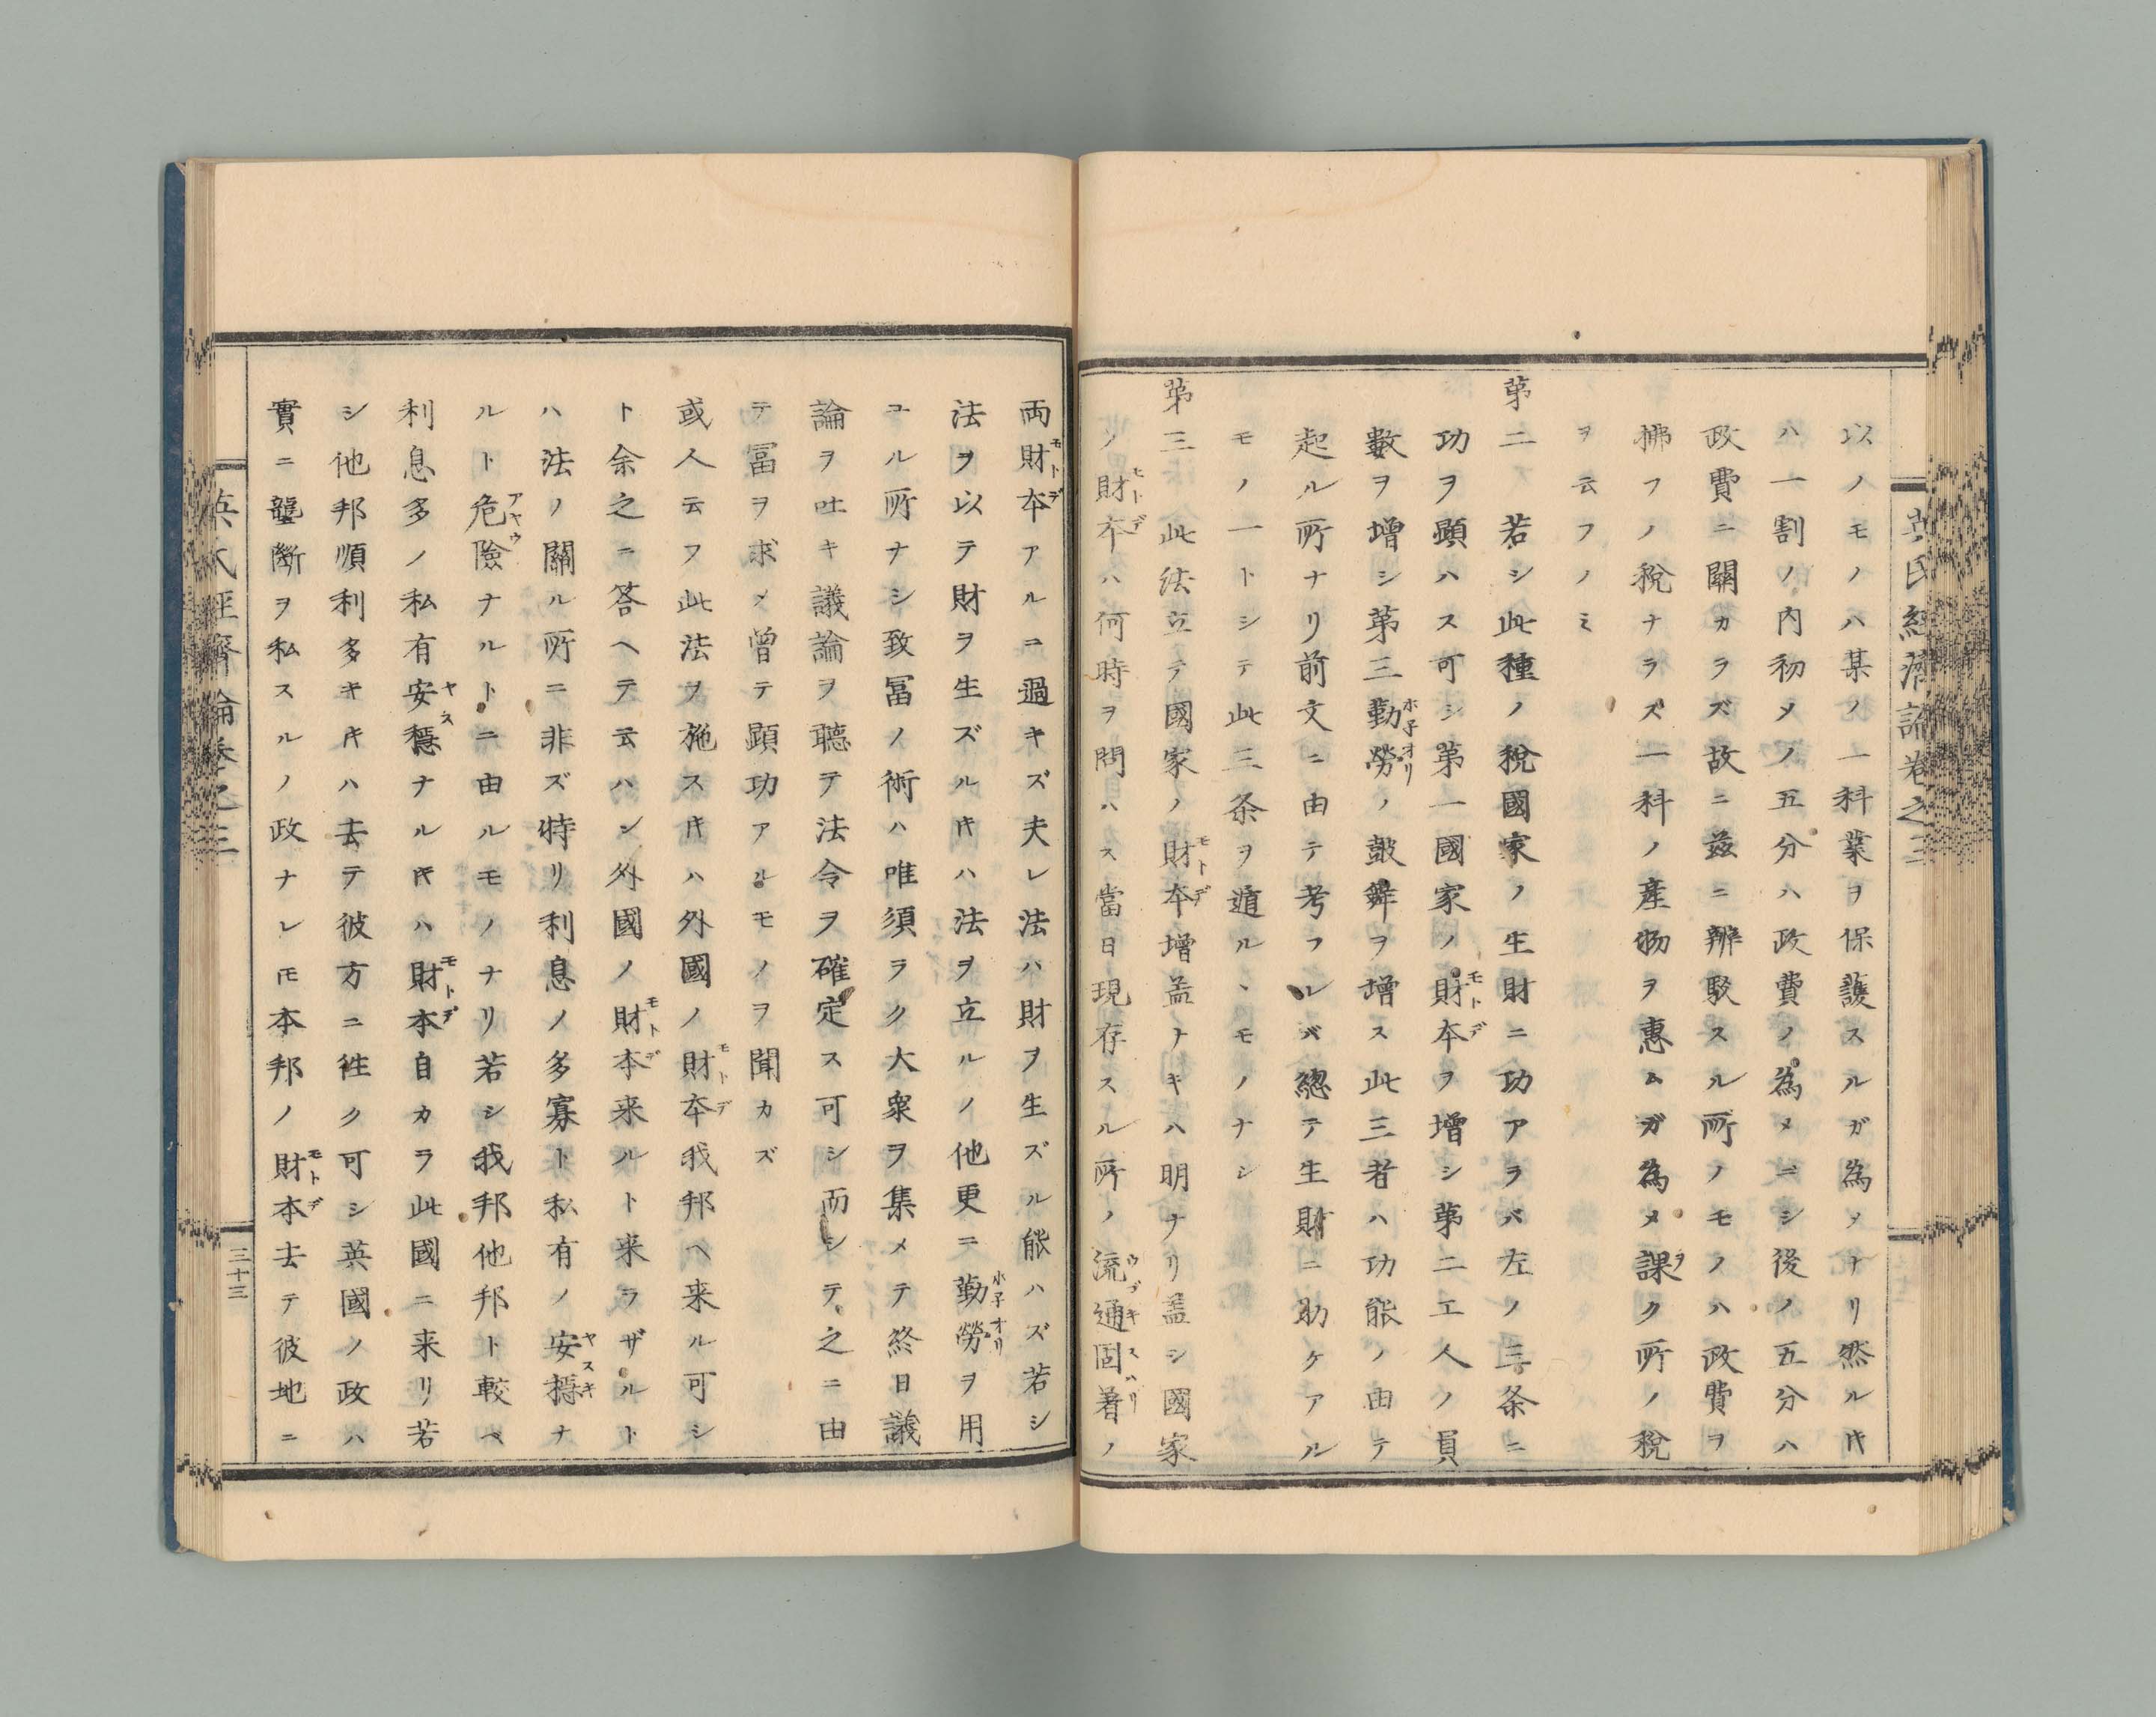 英氏經濟論卷之三
以ノモノハ某ノ一科業ヲ保護スルガ為メナリ然ルㇵ
ハ一割ノ内初メノ五分ハ政費ノ為メニシ後ノ五分ハ
政費ニ關カラズ故ニ茲ニ辨駁スル所ノモノハ政費ヲ
拂フノ稅ナラズ一科ノ產物ヲ惠ムガ為メ課ク所ノ稅
ヲ云フノミ
第二 若シ此種ノ稅國家ノ生財ニ功アラバ左ノ三条ニ
功ヲ顕ハス可シ第一國家ノ財本ヲ增シ第二工人ノ員
數ヲ增シ第三勤勞ノ鼓舞ヲ增ス此三者ハ功能ノ由テ
起ル所ナリ前文ニ由テ考フレバ總テ生財ニ助ケアル
モノ一トシテ此三条ヲ遁ルヽモノナシ
第三 此法立テ國家ノ財本增益ナキハ明ナリ蓋シ國家
ノ財本ハ何時ヲ問ハス當日現存スル所ノ流通固着ノ
両財本アルニ過キズ夫レ法ハ財ヲ生ズル能ハズ若シ
法ヲ以テ財ヲ生ズルㇵハ法ヲ立ルノ他更ニ勤勞ヲ用
ユル所ナシ致冨ノ術ハ唯須ラク大衆ヲ集メテ終日議
論ヲ吐キ議論ヲ聽テ法令ヲ確定ス可シ而シテ之ニ由
テ冨ヲ求メ曾テ顕功アルモノヲ聞カズ
或人云フ此法ヲ施スㇵハ外國ノ財本我邦ヘ来ル可シ
ト余之ニ答ヘテ云ハン外國ノ財本来ルト来ラザルト
ハ法ノ關ル所ニ非ズ特リ利息ノ多寡ト私有ノ安穩ナ
ルト危險ナルトニ由ルモノナリ若シ我邦他邦ト較ベ
利息多ノ私有安穩ナルㇵハ財本自カラ此國ニ来リ若
シ他邦順利多キㇵハ去テ彼方ニ徃ク可シ英國ノ政ハ
實ニ壟斷ヲ私スルノ政ナレㇳモ本邦ノ財本去テ彼地ニ
英氏經濟論卷之三
三十三